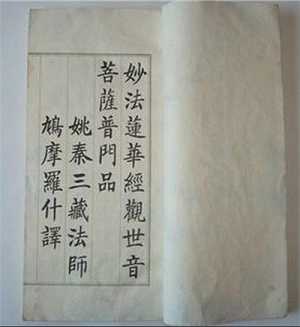 妙法蓮華經觀世音
菩薩普門品
姚秦三藏法師
鳩摩羅什譯